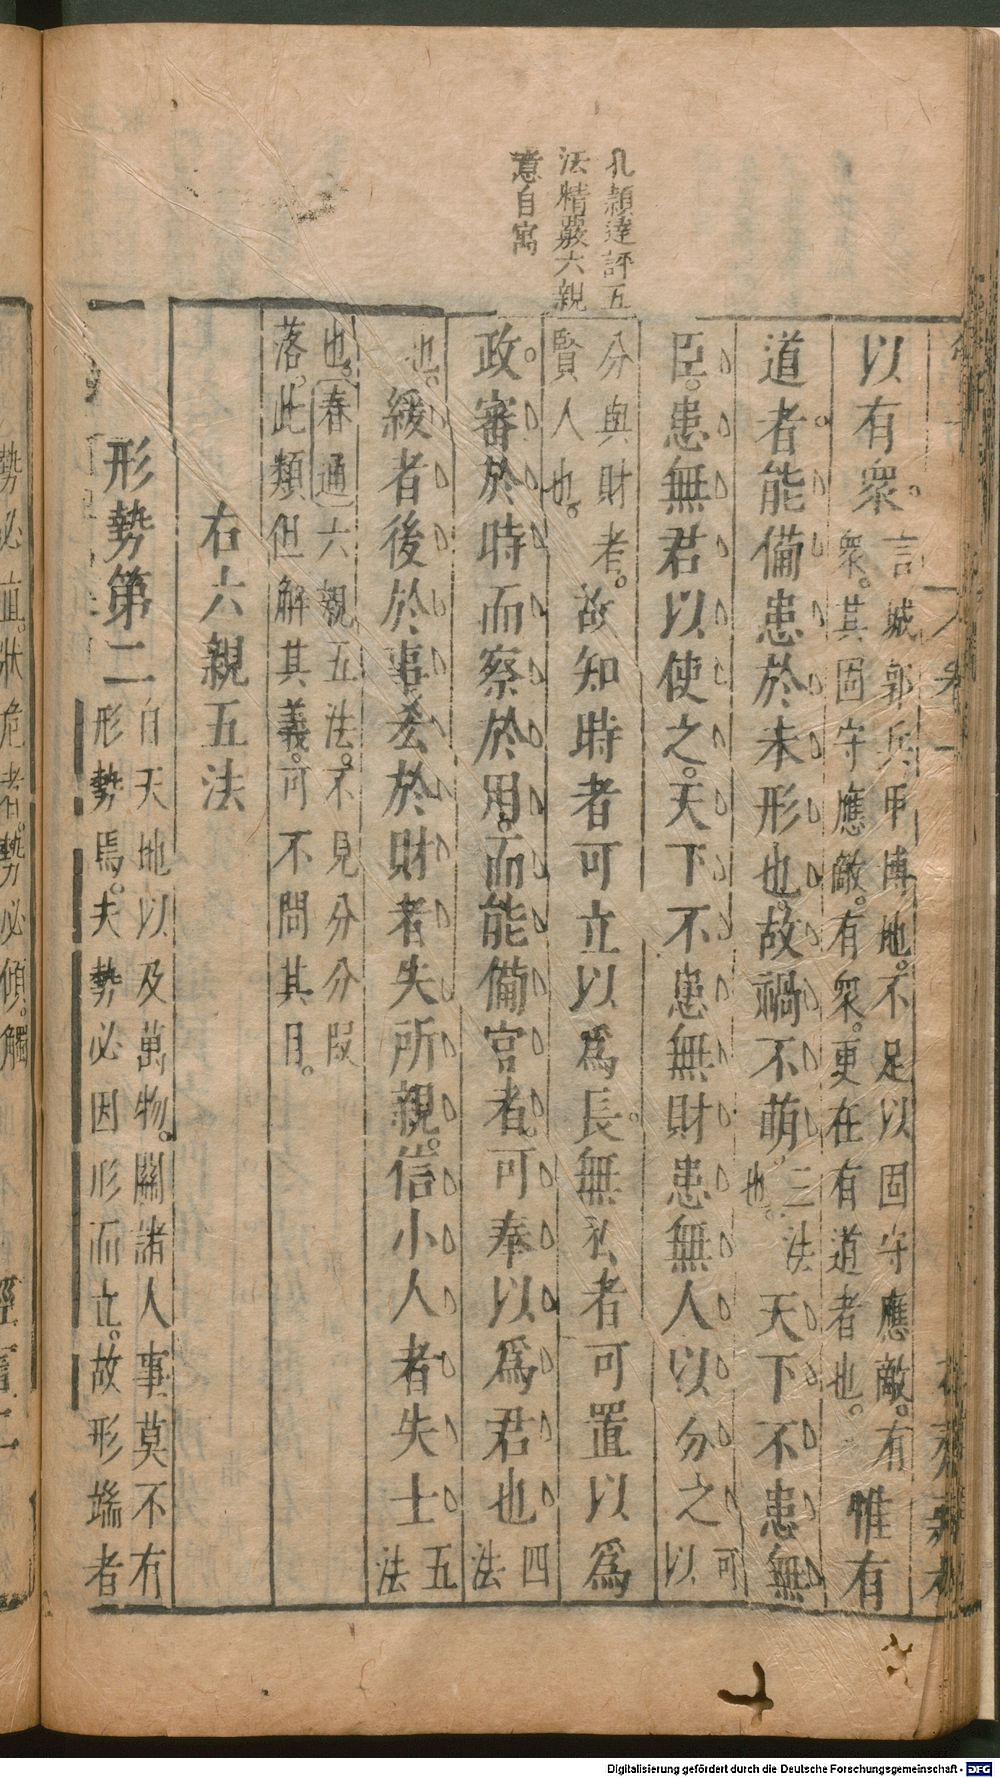 孔頴達評五
法精嚴六親
意自寓
以有衆。言城郭兵甲博地。不足以固守應敵。有衆。其固守應敵。有衆。更在有道者也。惟有
道者。能備患於未形也。故禍不萌。三法也。天下不患無
臣。患無君以使之。天下不患無財。患無人以分之。可以
分與財者。賢人也。故知時者可立以爲長。無私者可置以爲
政。審於時而察於用。而能備官者。可奉以爲君也。四法
也。緩者後於事。吝於財者失所親。信小人者失士。五法
也。春通六親五法。不見分分段
落。此類但解其義。可不問其目。
右六親五法
形勢第二自天地以及萬物。關諸人事莫不有形勢焉。夫勢必因形而立。故形端者
勢必直。狀危者。勢必傾。觸
Digitalisierung gefördert durch die Deutsche Forschungsgemeinschaft - DFG